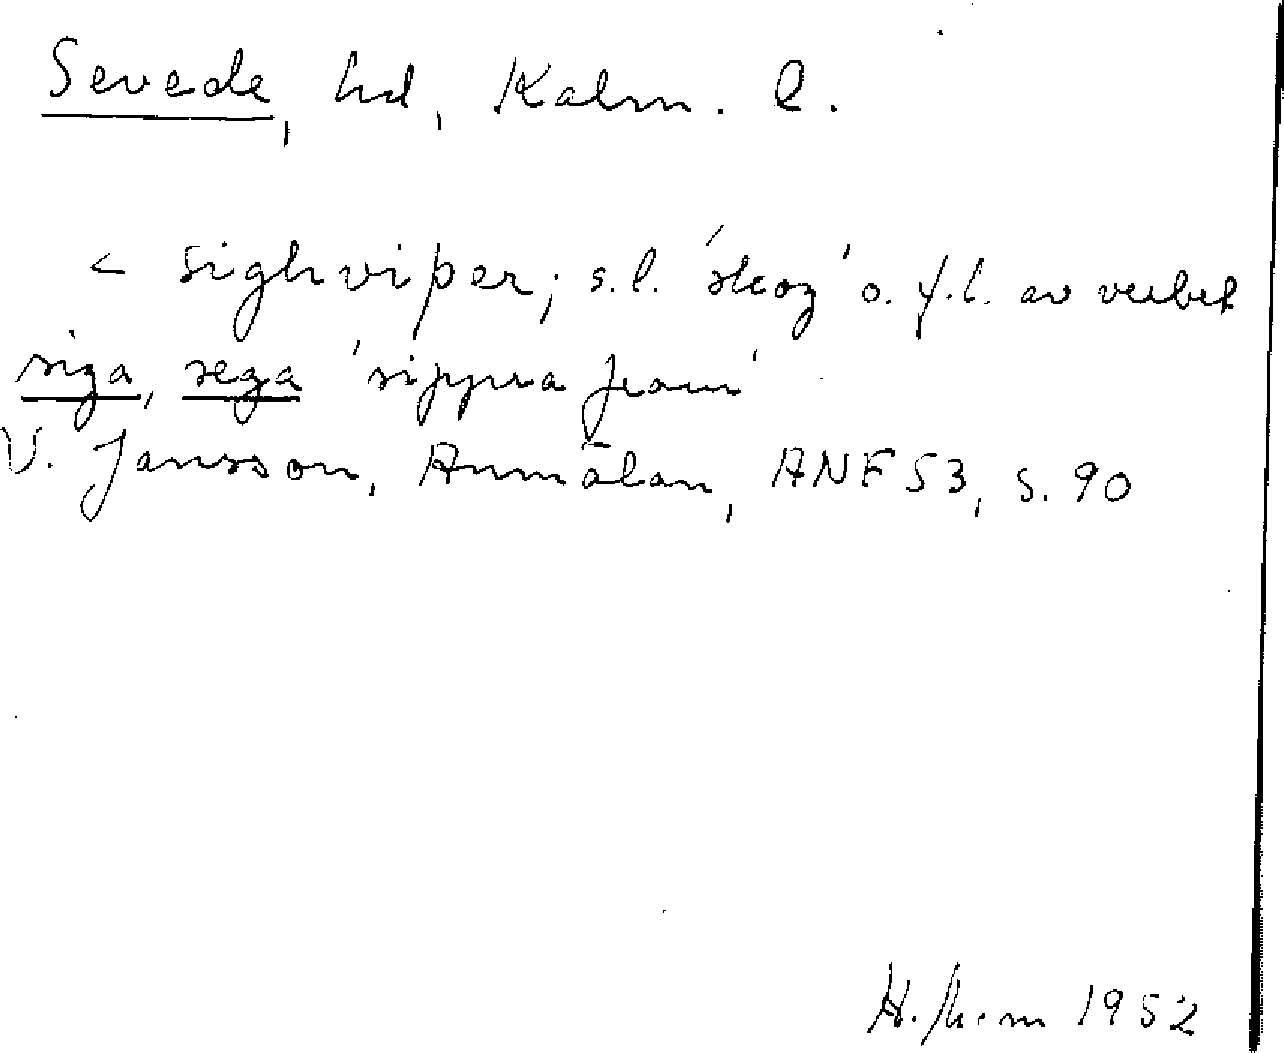 Sevede, hd, Kalm. l.
< sighviþer; s.l. 'skog' o.f.l. av verbet
siga, sega 'sippra fram'
V. Jansson, Anmälan, ANF 53, s. 90
1952